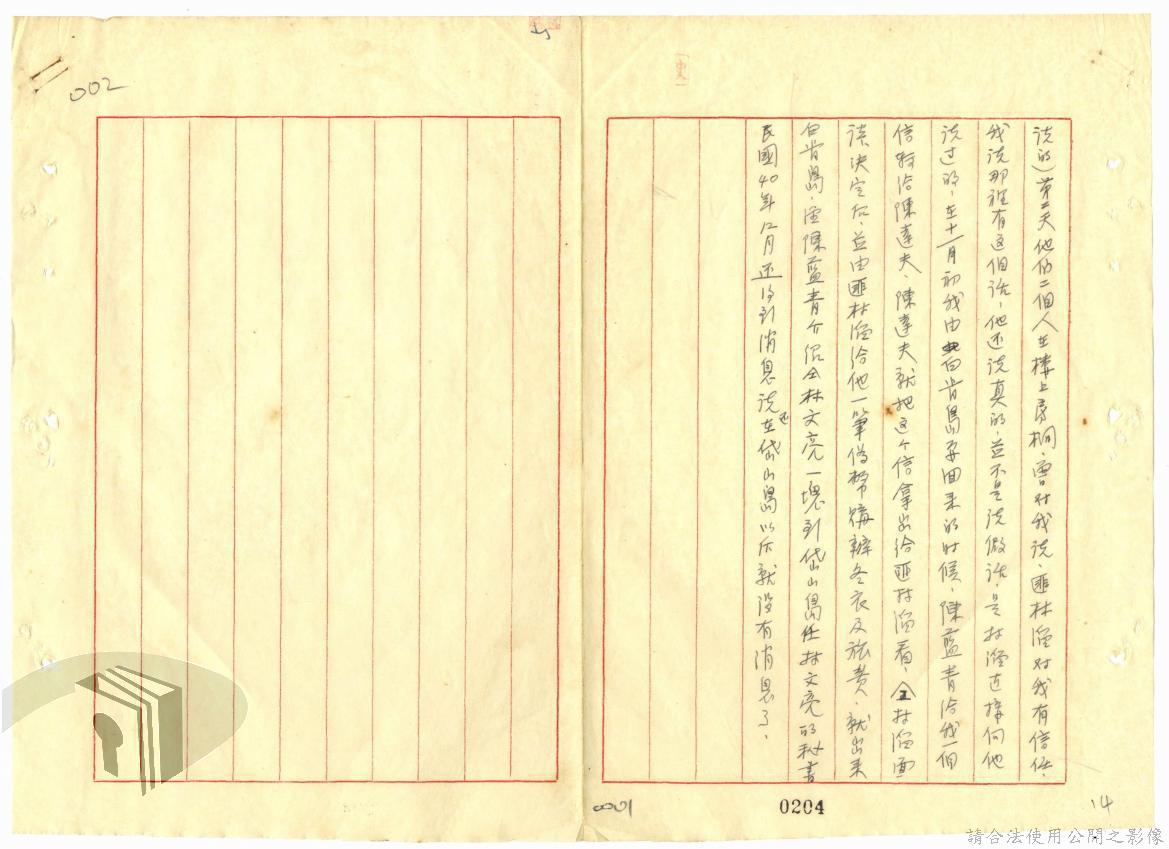 002
史
说的)第二天他伯二個人在楼上房桐,曾对我说、匪林滛对我有信任,
我说那裡有这個话,他还说真的,並不是说做话,是林滛近接何他
说过的,在十一月初我由白肯島要囬来的时候,陳藍青给我一個
信转给陳達夫、陳達夫就把这个信拿出给匪林滛看,仝林滛面
谈决定后,並由匪林滛给他一筆偽幣購辦冬衣及旅费、就出来
白肯島,由陳藍青介绍仝林文亮一塊到岱山島任林文亮的秘書
民國40年12月还得到消息说还在岱山島以后就没有消息了、
0001
0204
14
請合法使用公開之影像